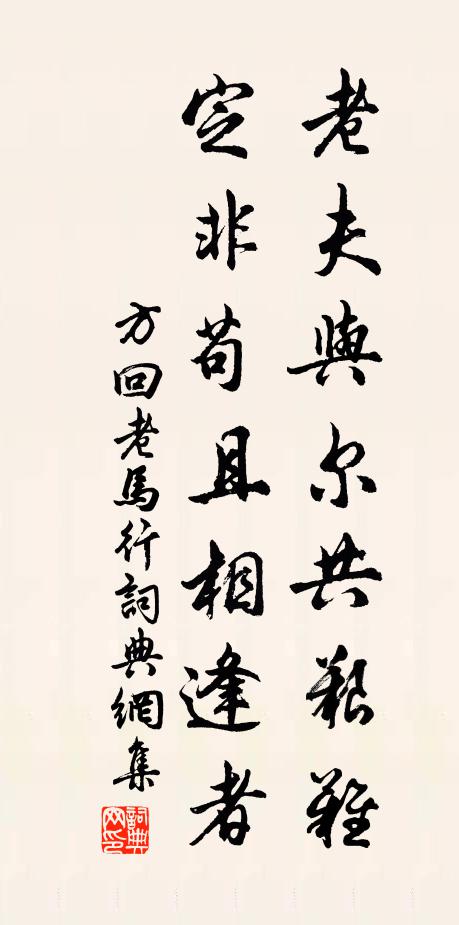 老夫與尔共艱難
定非苟且相逢者
方回老馬行詞典網集
詞典網印